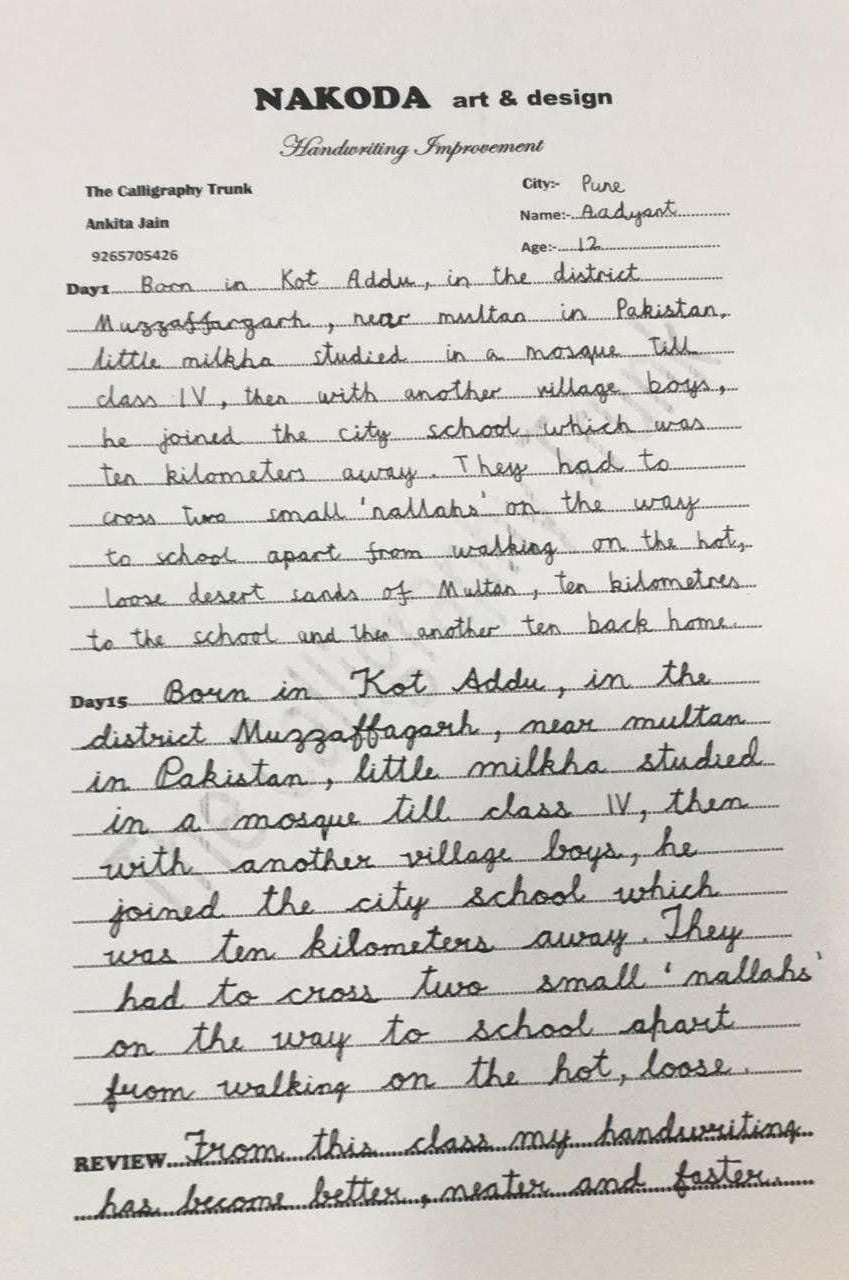 NAKODA art & design
Handwriting Improvement
The Calligraphy Trunk
City:- Pune
Ankita Jain
Name:- Aadyant
9265705426
Age:- 12
Day1 Born in Kot Addu, in the district
Muzzaffargarh, near multan in Pakistan,
little milkha studied in a mosque till
class IV, then with another village boys,
he joined the city school which was
ten kilometers away. They had to
cross two small 'nallahs' on the way
to school apart from walking on the hot,
loose desert sands of Multan, ten kilometres
to the school and then another ten back home.
Day15 Born in Kot Addu, in the
district Muzzaffagarh, near multan
in Pakistan, little milkha studied
in a mosque till class IV, then
with another village boys, he
joined the city school which
was ten kilometers away. They
had to cross two small 'nallahs'
on the way to school apart
from walking on the hot, loose.
REVIEW From this class my handwriting
has become better, neater and faster.
The Calligraphy Trunk